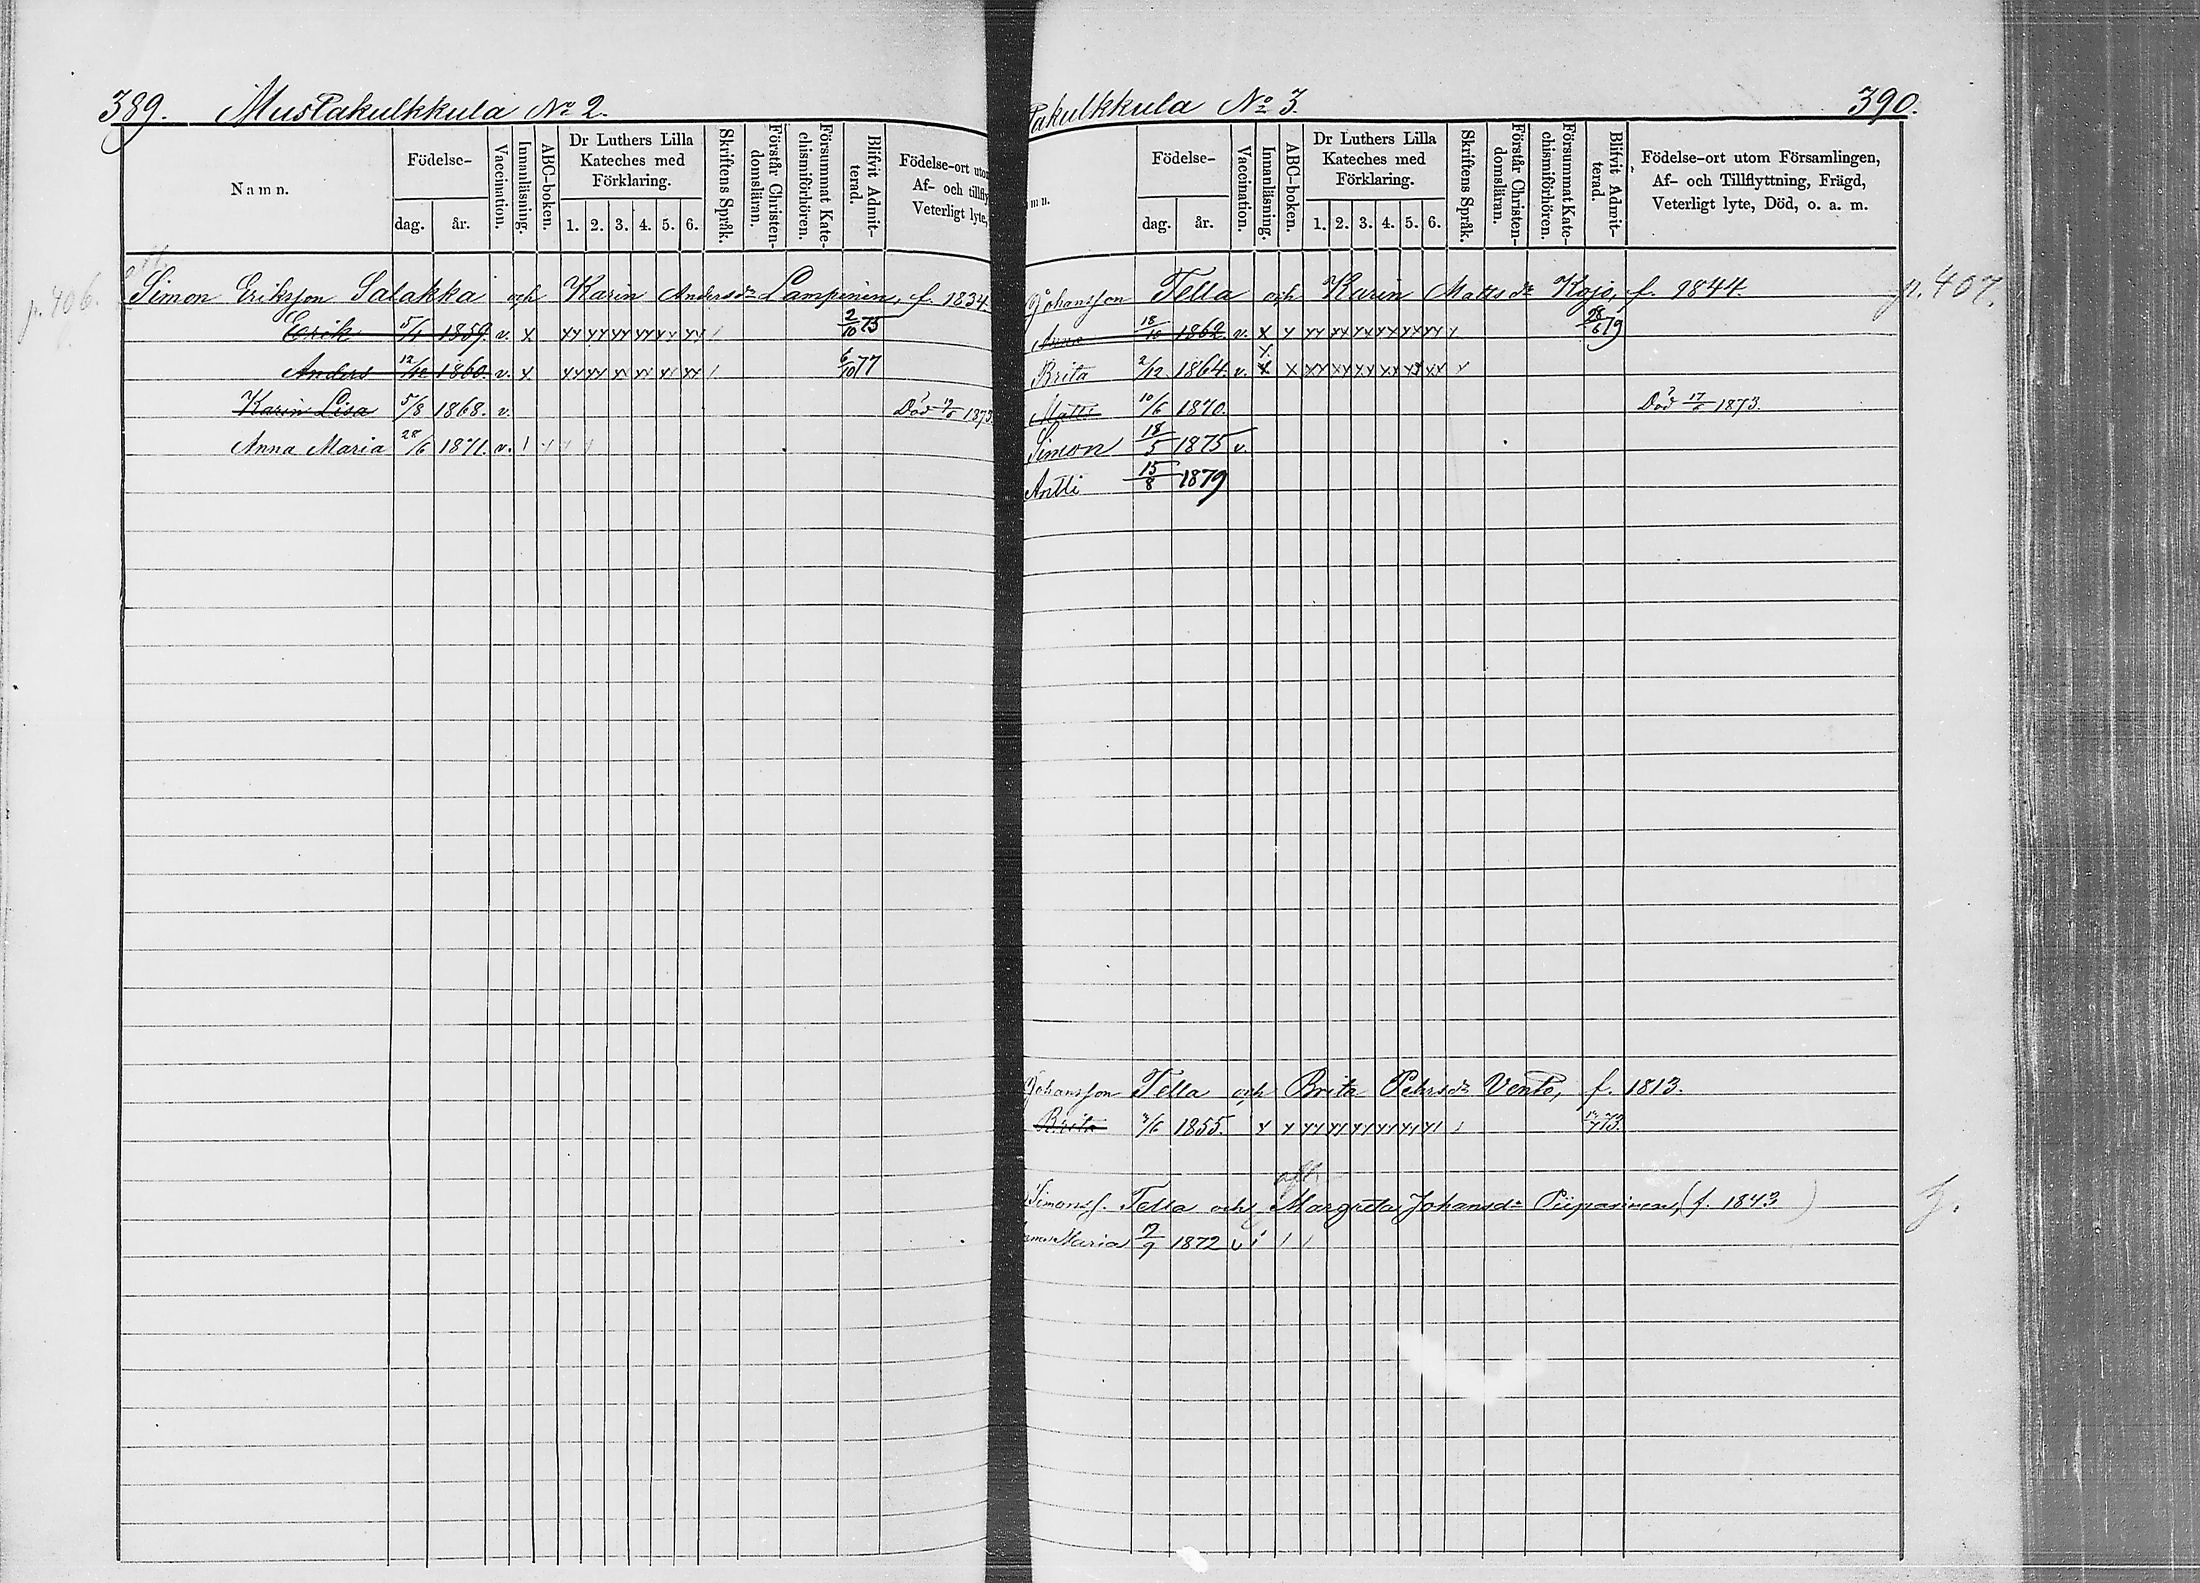 389. Mustakulkkula No 2.
Namn.
Födelse-
dag. år.
Vaccination.
Innanläsning.
ABC-boken.
Dr Luthers Lilla
Kateches med
Förklaring.
1. 2. 3. 4. 5. 6.
Skriftens Språk.
Förstår Christen-
domsläran.
Försummat Kate-
chismiförhören.
Blifvit Admit-
terad.
Födelse-ort uto
Af- och tillfly
Veterligt lyte,
p. 406.
Simon Eriksson Salakka och Karin Andersdr Lampinen, f. 1834.
Erik 5/1 1859. v. x xx xx xx xx xx xx / 2/10 75
Anders 12/12 1860. v. x xx xx xx xx xx xx / 6/10 77
Karin Lisa 5/8 1868. v. Död 1873
Anna Maria 28/6 1871. v.
akulkkula No 3. 390.
mn.
Födelse-
dag. år.
Vaccination.
Innanläsning.
ABC-boken.
Dr Luthers Lilla
Kateches med
Förklaring.
1. 2. 3. 4. 5. 6.
Skriftens Språk.
Förstår Christen-
domsläran.
Försummat Kate-
chismiförhören.
Blifvit Admit-
terad.
Födelse-ort utom Församlingen,
Af- och Tillflyttning, Frägd,
Veterligt lyte, Död, o. a. m.
Johansson Tella och Karin Mattsdr Kojo, f. 1844. p. 407.
Anna 18/10 1862. v. x x xx xx xx xx xx xx x 28/6 79
Brita 2/12 1864. v. x x xx xx xx xx xx xx x
Matts 10/6 1870. Död 17/6 1873.
Simon 18/5 1875 v.
Antti 15/8 1879
Johansson Tella och Brita Pehrsdr Vento, f. 1813.
Brita 1855. x x xx 73.
Simonss. Tella och Margreta Johansdr Piipaninen, (f. 1843)
Maria 7/9 1872 v